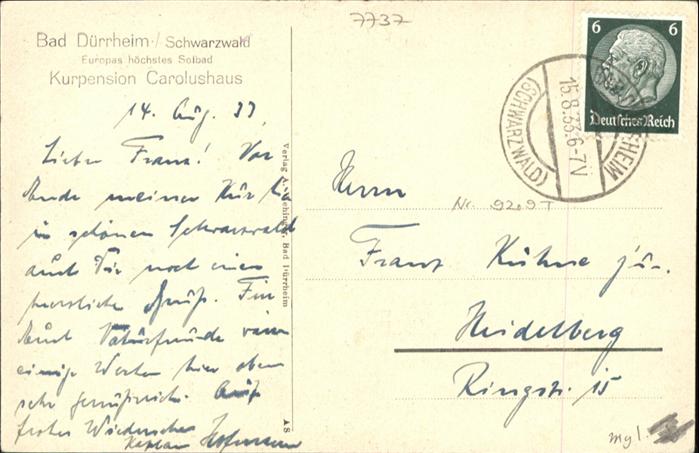 7737
Bad Dürrheim / Schwarzwald
Europas höchstes Solbad
Kurpension Carolushaus
14. Aug. 33.
Lieber Franz! Vor
Ende meiner Kur hier
im schönen Schwarzwald
auch Dir noch einen
herzlichen Gruß. Für
Naturfreunde
einige Worten hier oben
sehr
frohes Wiedersehen
Kaplan Hofmann
Verlag Bad Dürrheim
AS
6 6
Deutsches Reich
(SCHWARZWALD)
15.8.33.6-7V
Herrn
Nr. 9209T
Franz Kühne jr.
Heidelberg
Ringstr. 15
mgl.